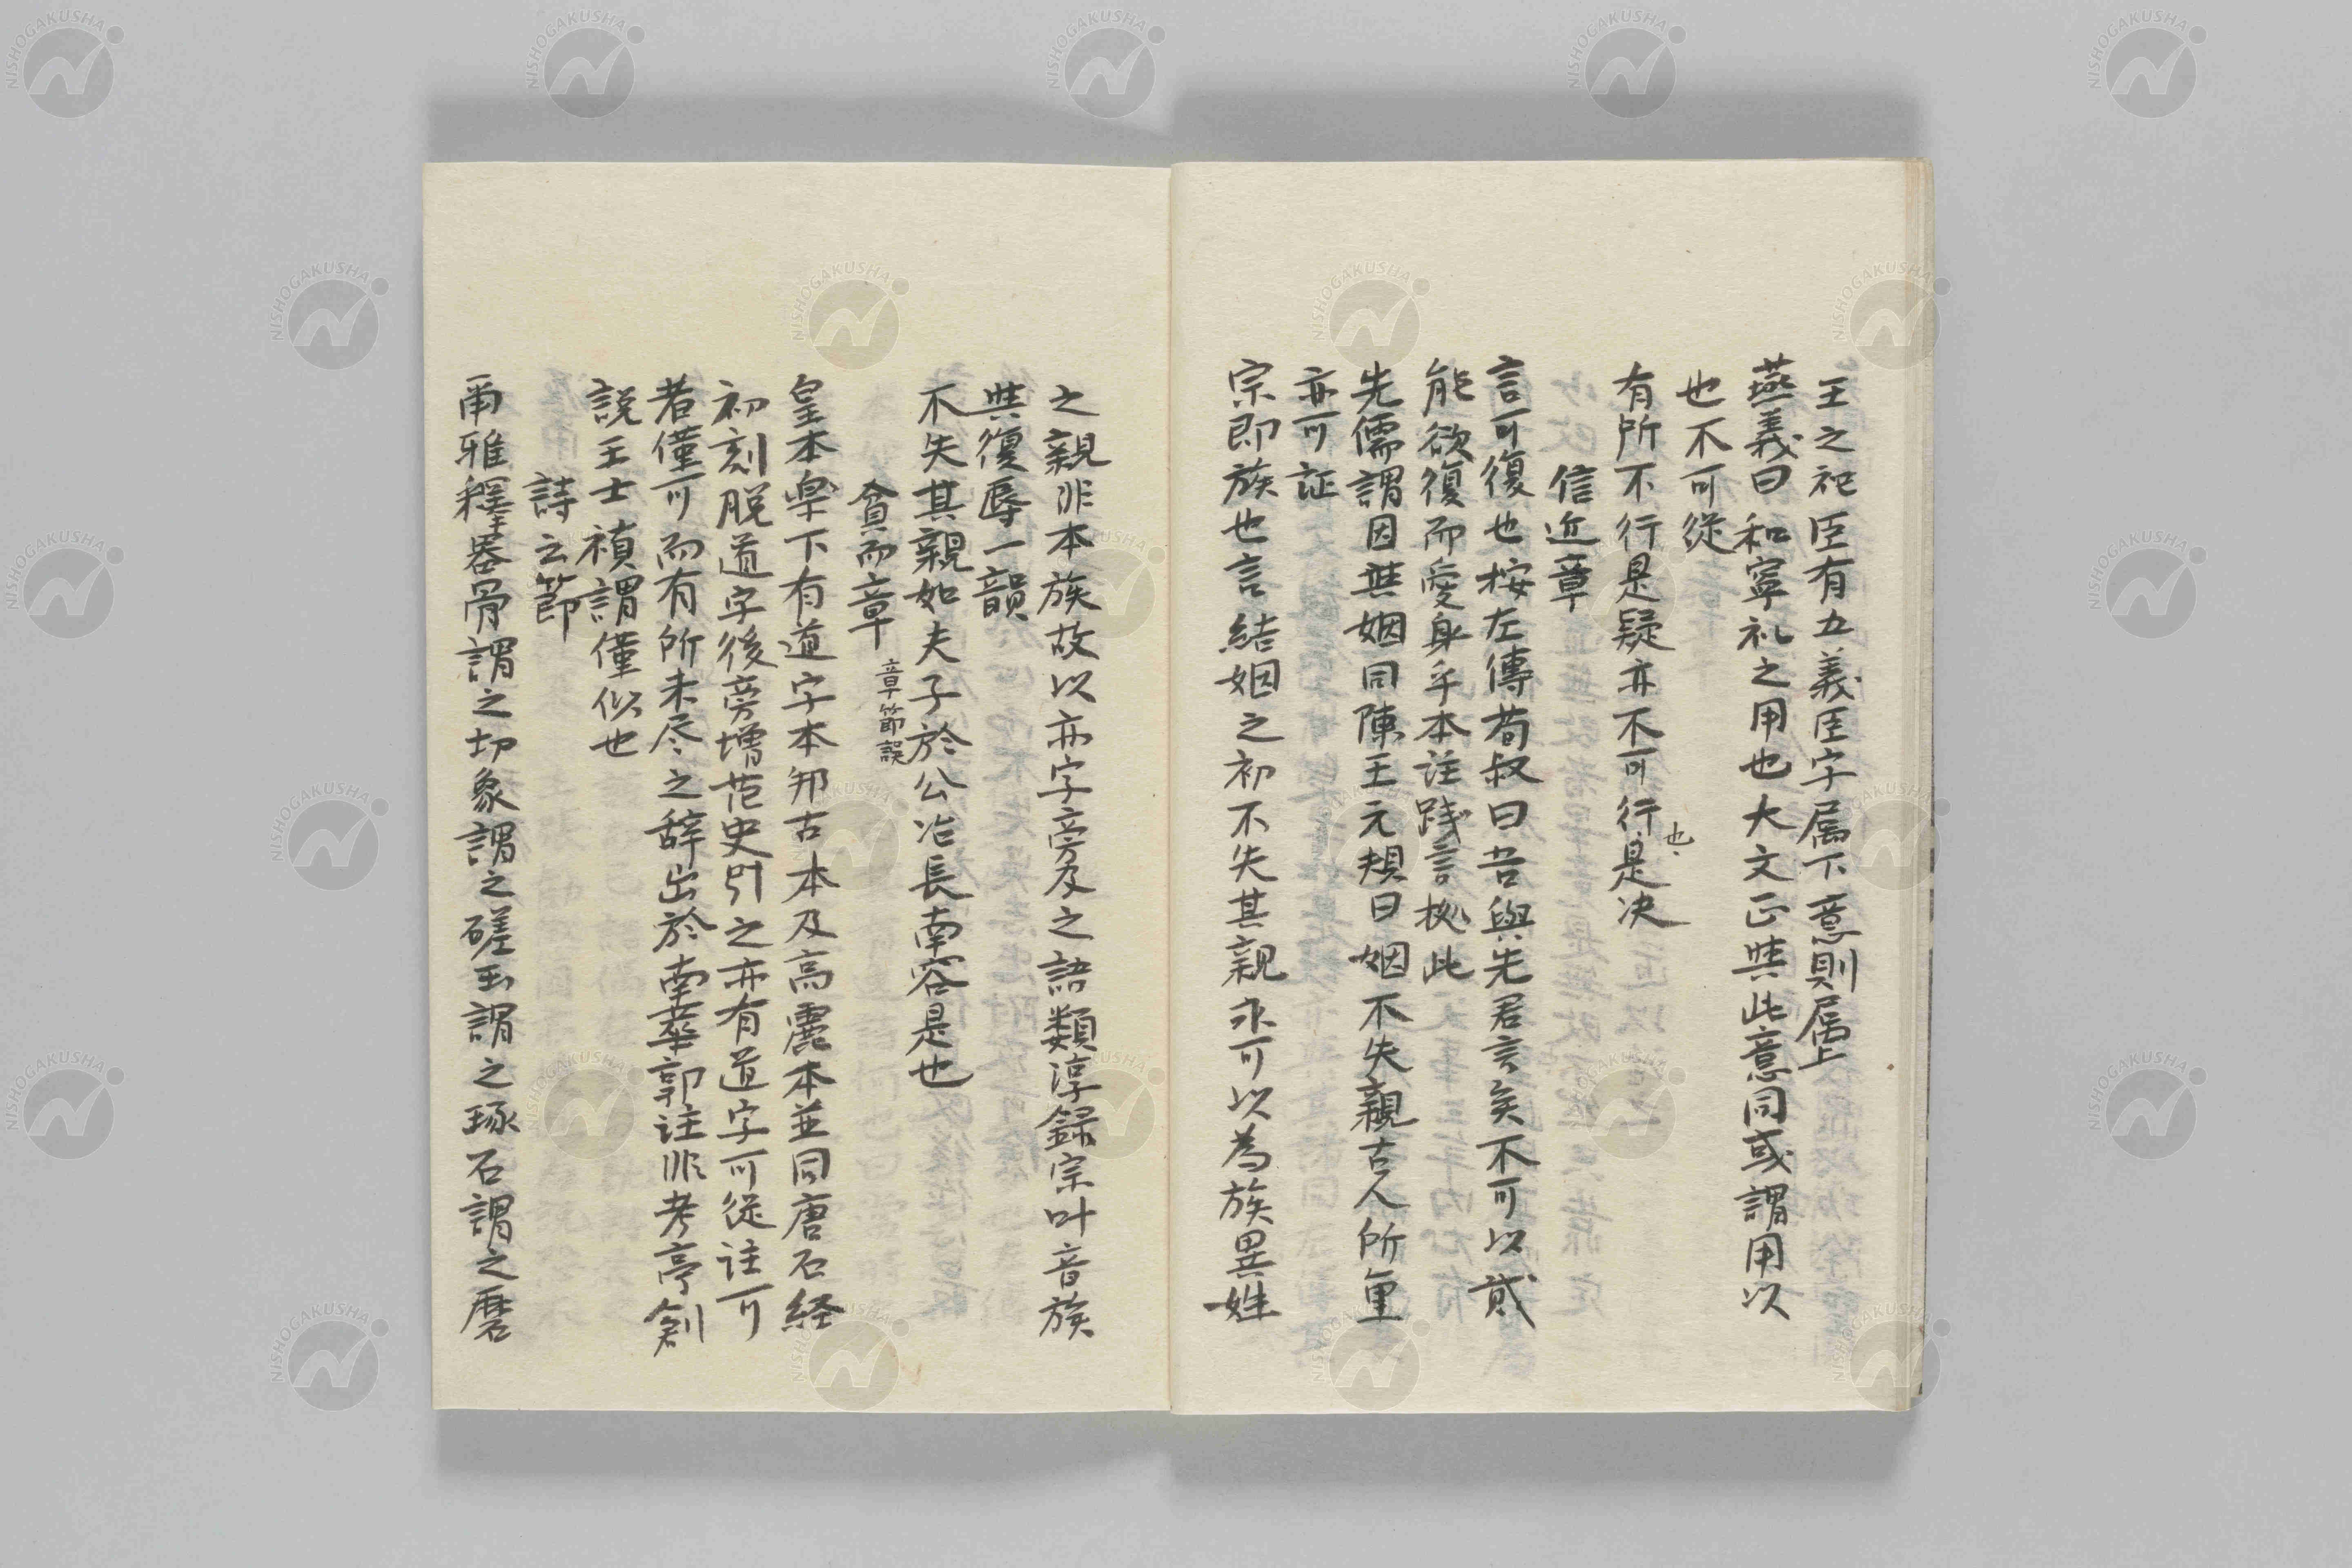 王之祀臣有五義臣字属下意則属上
燕義曰和寧礼之用也大文正與此意同或謂用以
也不可従
有所不行是疑亦不可行也是决
信近章
言可復也按左傳荀叔曰吾與先君言矣不可以貳
能欲復而愛身乎本註践言拠此
先儒謂因與姻同陳王元規曰姻不失親古人所重
亦可証
宗即族也言結姻之初不失其親永可以為族異姓
之親非本族故以亦字旁及之語類淳録宗叶音族
與復辱一韻
不失其親如夫子於公冶長南容是也
貧而章 章節誤
皇本楽下有道字本邦古本及高麗本並同唐石経
初刻脱道字後旁増范史引之亦有道字可従註可
者僅可而有所未尽之辞出於南華郭註非考亭創
説王士禎謂僅似也
詩云節
爾雅釋器骨謂之切象謂之磋玉謂之琢石謂之磨
NISHOGAKUSHA